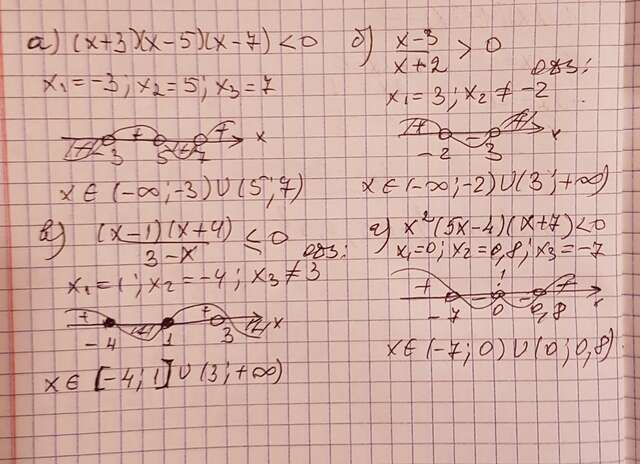 а) (x+3)(x-5)(x-7)<0
x₁=-3; x₂=5; x₃=7
+ + x
-3 5 7
x∈(-∞;-3)∪(5;7)
б) x-3
x+2 > 0
ОДЗ:
x₁=3; x₂≠-2
+ - + x
-2 3
x∈(-∞;-2)∪(3;+∞)
в) (x-1)(x+4)
3-x ≤0
ОДЗ:
x₁=1; x₂=-4; x₃≠3
+ + x
-4 1 3
x∈[-4;1]∪(3;+∞)
г) x²(5x-4)(x+7)<0
x₁=0; x₂=0,8; x₃=-7
+ - - + x
-7 0 0,8
x∈(-7;0)∪(0;0,8)